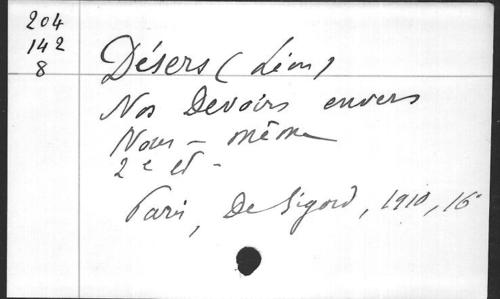 204
142
8
Désers (Léon)
Nos Devoirs envers
Nous-même
2e ed-
Paris, De Gigord, 1910, 16°